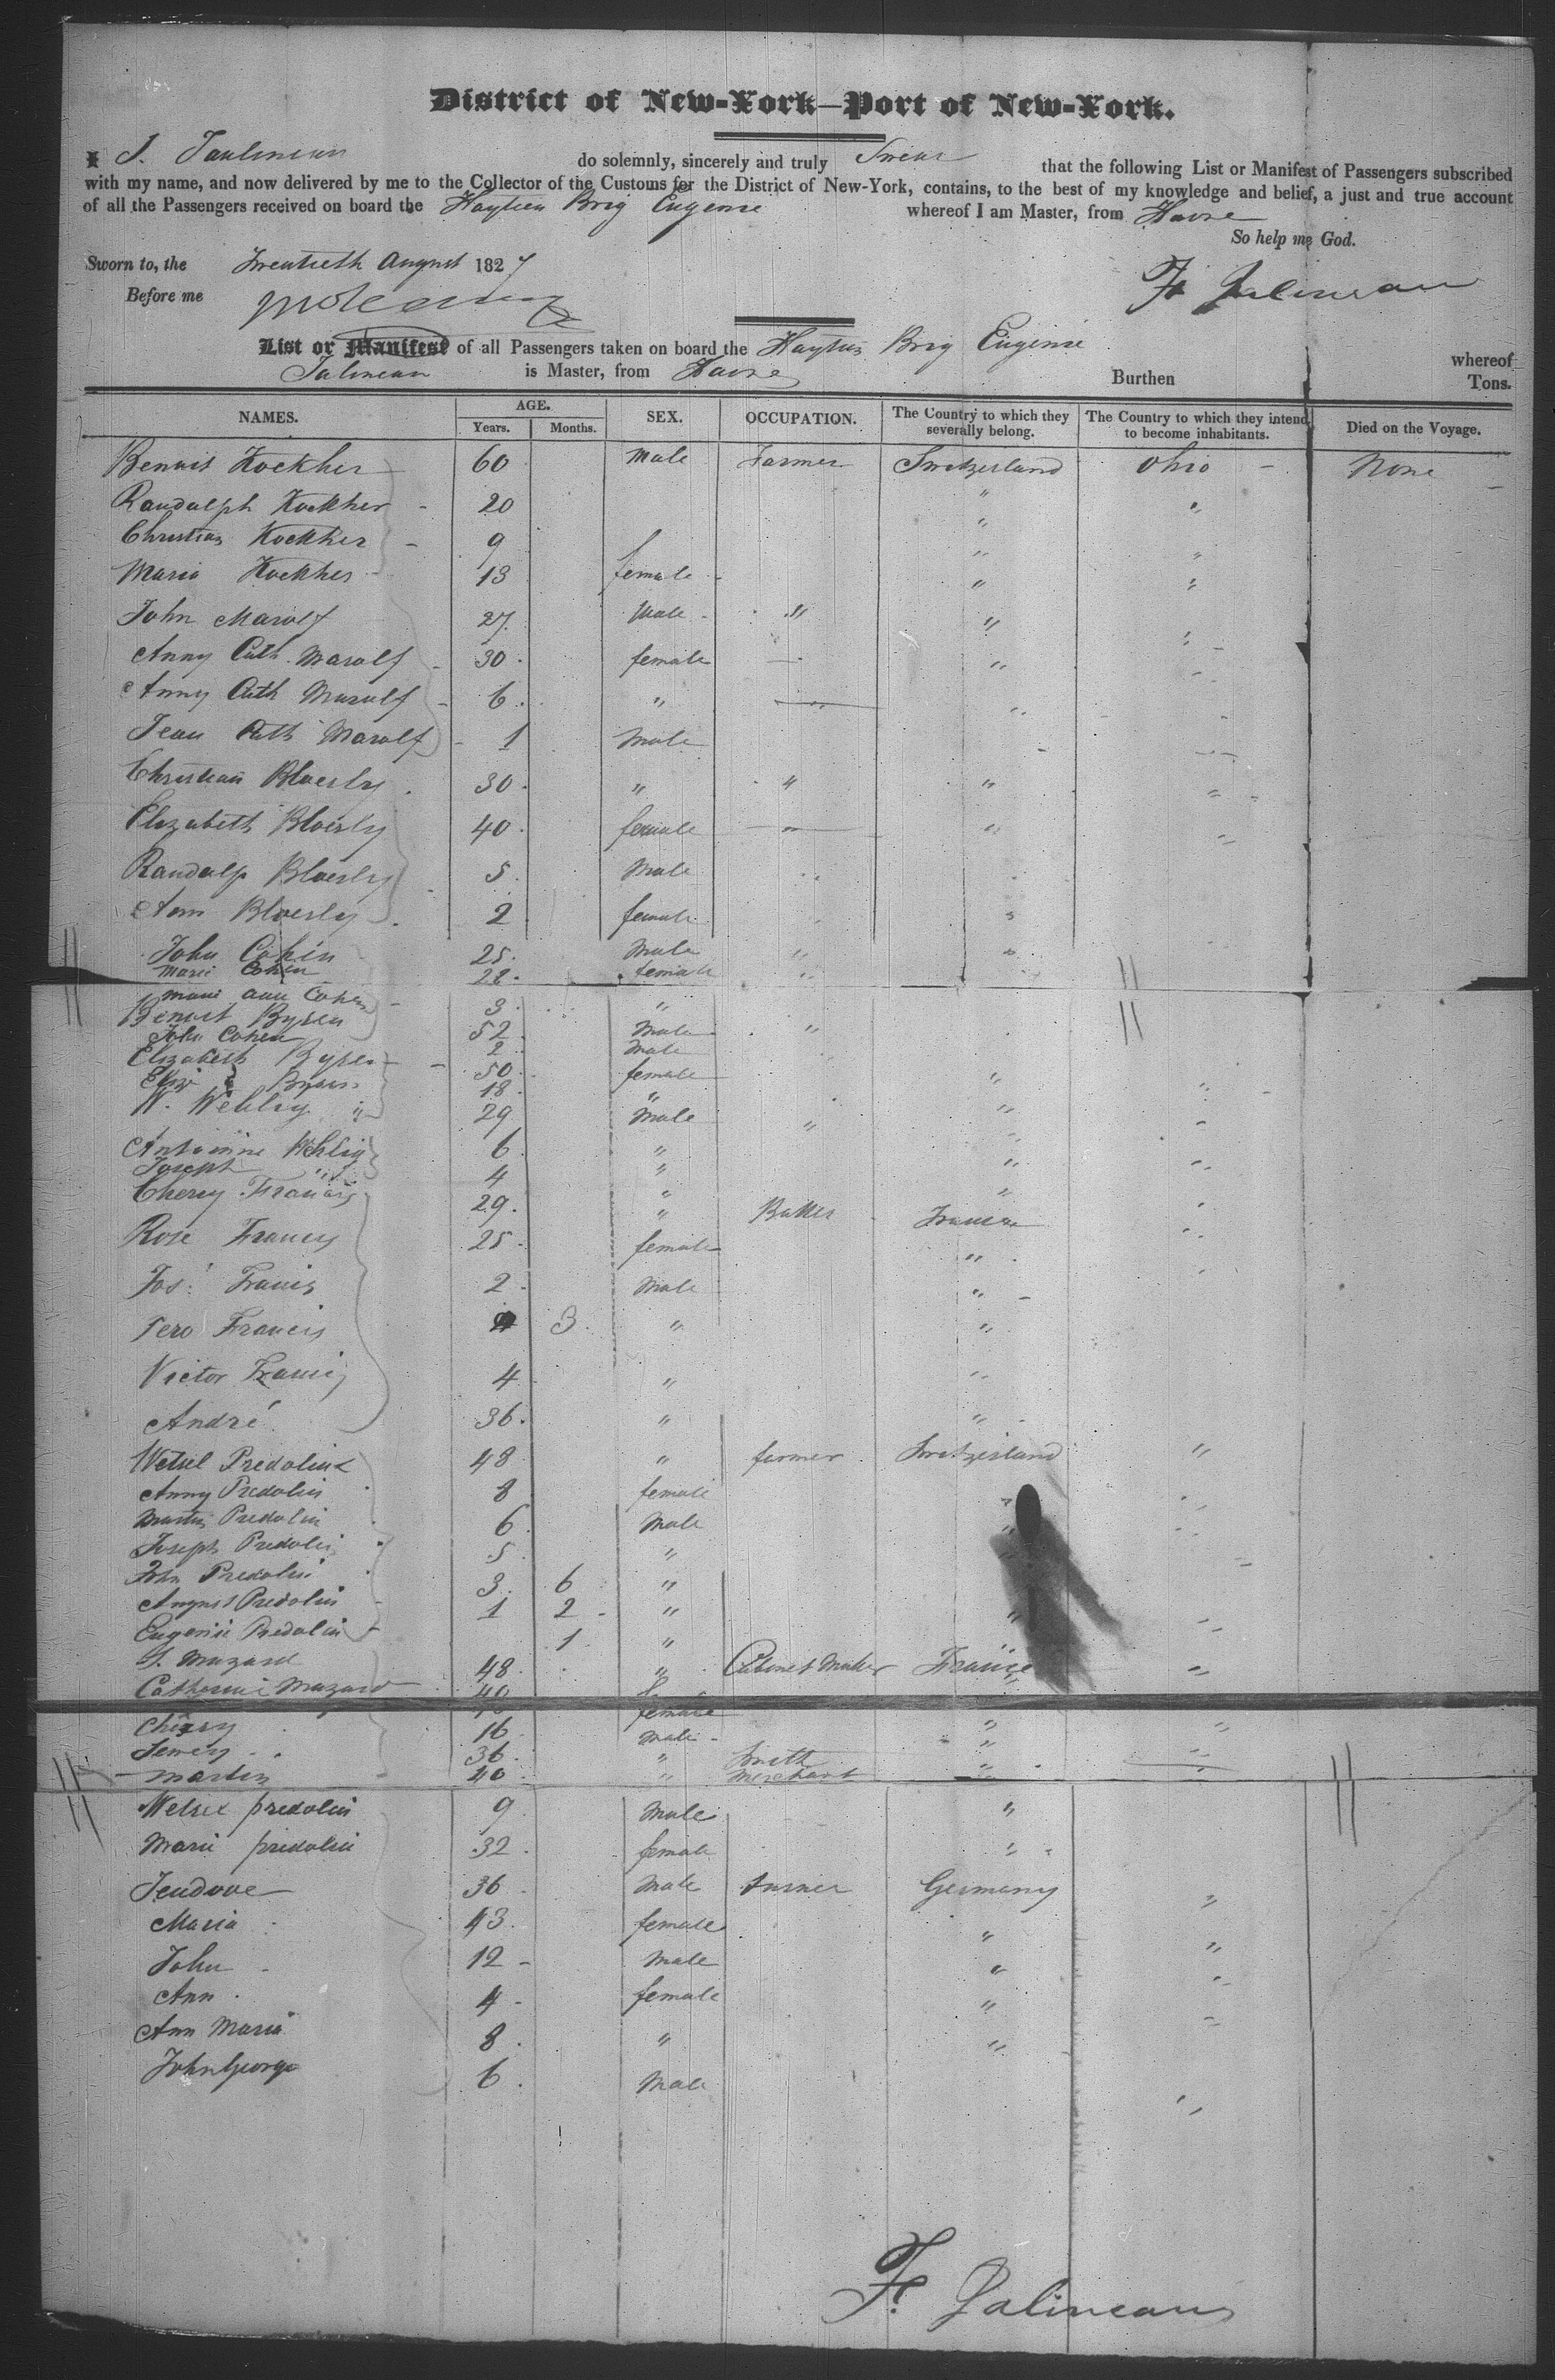 District of New-York—Port of New-York.
I J. Jaulineau do solemnly, sincerely and truly Swear that the following List or Manifest of Passengers subscribed
with my name, and now delivered by me to the Collector of the Customs for the District of New-York, contains, to the best of my knowledge and belief, a just and true account
of all the Passengers received on board the Haytien Brig Eugenie whereof I am Master, from Havre
So help me God.
Sworn to, the Twentieth August 1827
Before me
F. Jalineau
List or Manifest of all Passengers taken on board the Haytien Brig Eugenie whereof
Jalineau is Master, from Havre Burthen Tons.
NAMES. AGE. Years. Months. SEX. OCCUPATION. The Country to which they severally belong. The Country to which they intend to become inhabitants. Died on the Voyage.
Benuit Kockher 60 Male Farmer Switzerland Ohio None
Randalph Kockher 20 " "
Christian Kockher 9 " "
Maria Kockher 13 female " "
John Marolf 27 Male " " "
Anny Cath. Marolf 30 female " "
Anny Cath Marolf 6 " " "
Jean Cath Marolf 1 Male
Christian Bloesly 30 " " " "
Elizabeth Bloesly 40 female " " "
Randalp Bloesly 5 Male
Ann Bloesly 2 female "
John Cohen 25 Male " "
Marie Cohen 28 female "
Marie ann Cohen 3 "
Benuit Bysen 52 Male "
John Cohen 2 Male
Elizabeth Bysen 50 female "
Elize Bysen 18 " "
W. Wehlig 29 Male "
Antoinine Wehlig 6 " " "
Joseph " 4 " "
Chery Francis 29 " Baker France "
Rose Francis 25 female "
Jos: Francis 2 Male "
Pero Francis 3 " "
Victor Francis 4 " "
André 36 " "
Wetsel Predolin 48 " farmer Switzerland "
Anny Predolin 8 female "
Martin Predolin 6 Male "
Joseph Predolin 5 " "
John Predolin 3 6 "
August Predolin 1 2 " "
Eugenie Predolin 1 "
J. Mazard 48 " Cabinet Maker France "
Catherine Mazard 40 female "
Chery 16 Male " "
Jemery 36 " Smith " "
Martin 40 " Merchant " "
Wetsel predolin 9 Male "
Marie predolin 32 female "
Jeudove 36 Male turner Germany "
Maria 43 female " "
John 12 Male " "
Ann 4 female " "
Ann Maria 8 " "
John George 6 Male "
F. Jalineau